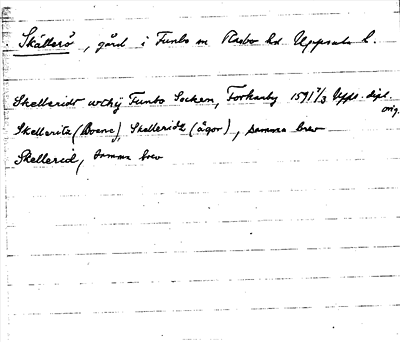 Skällerö, gård i Funbo sn Rasbo hd Uppsala l.
Skelleridt widh Funbo Socken, 1591 7/3 Upps. dipl.
orig.
Skelleritz (Boene) Skelleridtz (ägor), samma brev
Skellerid, samma brev